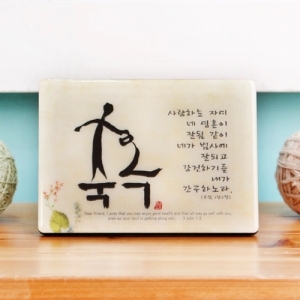 축
사랑하는 자여
네 영혼이
잘됨 같이
네가 범사에
잘되고
강건하기를
내가
간구하노라.
Dear friend, I pray that you may enjoy good health and that all may go well with you,
even as your soul is getting along well.